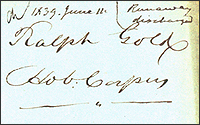 In 1839. June 11. Runaway discharge
Ralph Gold
Hab: Corpus
"